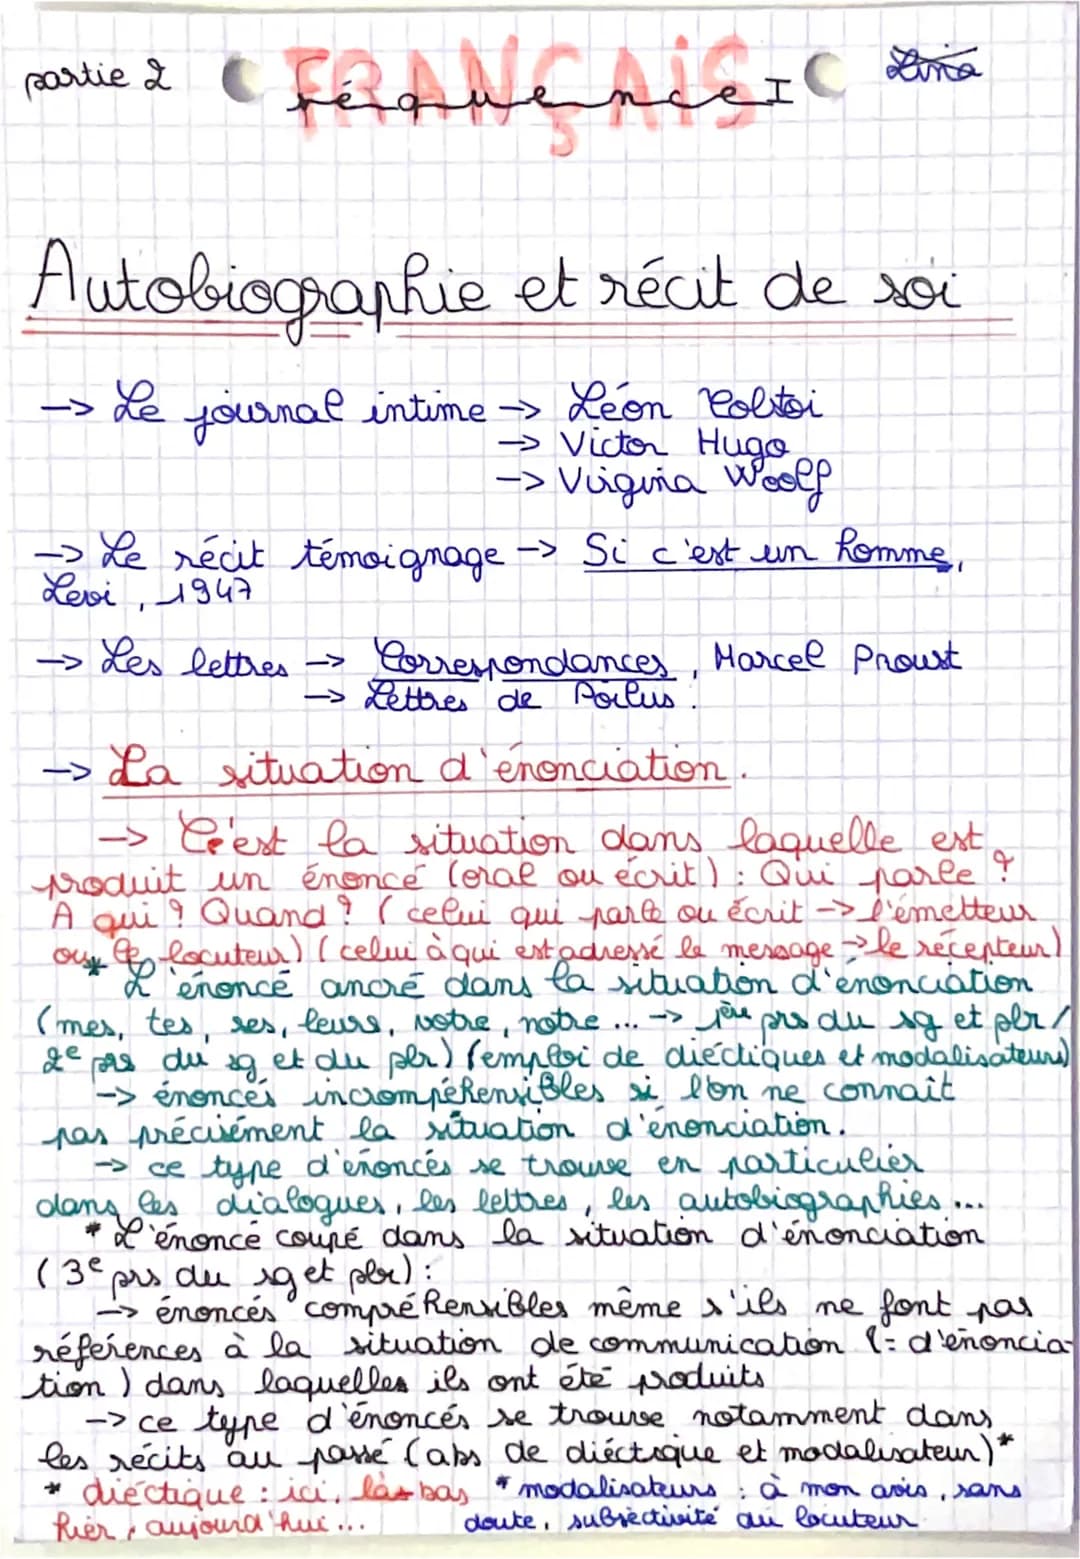 partie 2 FRANÇAIS Lina
séquence I
Autobiographie et récit de soi
-> Le journal intime -> Léon Tolstoi
-> Victor Hugo
-> Virgina Woolf
-> Le récit témoignage -> Si c'est un homme,
Levi, 1947
-> Les lettres -> Correspondances, Marcel Proust
-> Lettres de Poilus.
-> La situation d'énonciation.
-> C'est la situation dans laquelle est
produit un énoncé (oral ou écrit) : Qui parle ?
A qui ? Quand ? (celui qui parle ou écrit -> l'émetteur
ou le locuteur) (celui à qui est adressé le message -> le récepteur)
* L'énoncé ancré dans la situation d'énonciation
(mes, tes, ses, leurs, votre, notre ... -> 1ère prs du sg et plr /
2e prs du sg et du plr) (emploi de diéctiques et modalisateurs)
-> énoncés incrompéhensibles si l'on ne connait
pas précisément la situation d'énonciation.
-> ce type d'énoncés se trouve en particulier
dans les dialogues, les lettres, les autobiographies ...
* L'énoncé coupé dans la situation d'énonciation
(3e prs du sg et plr) :
-> énoncés compréhensibles même s'ils ne font pas
références à la situation de communication (= d'énoncia-
tion) dans laquelles ils ont été produits
-> ce type d'énoncés se trouve notamment dans
les récits au passé (abs de diéctique et modalisateur)*
* diéctique : ici, là-bas, * modalisateurs : à mon avis, sans
hier, aujourd'hui ... doute, subjectivité du locuteur